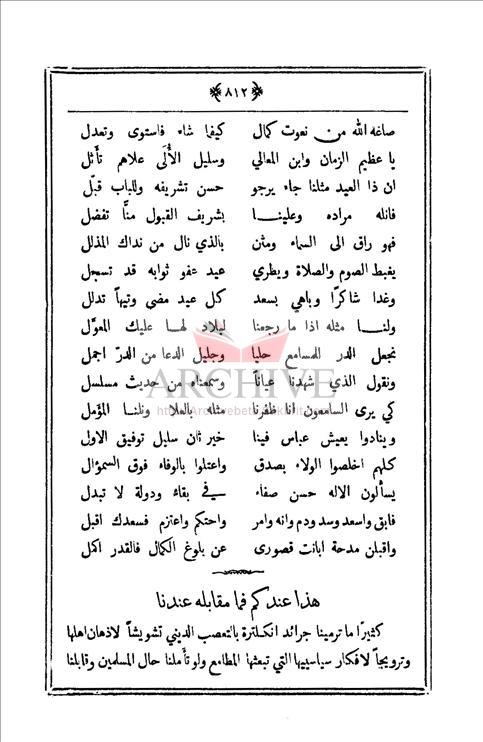 ٨١٢
صاغه الله من نعوت كمال كيفما شاء فاستوى وتعدل
يا عظيم الزمان وابن المعالي وسليل الأُلَى علاهم تأثل
ان ذا العيد مثلنا جاء يرجو حسن تشريفه وللباب قبّل
فانله مراده وعلينا بشريف القبول منًّا تفضل
فهو راق الى السماء ومثن بالذي نال من نداك المذلل
يغبط الصوم والصلاة ويطري عيد عفو ثوابه قد تسجل
وغدا شاكرًا وباهي بسعد كل عيد مضى وتيهاً تدلل
ولنا مثله اذا ما رجعنا لبلاد لها عليك المعوَّل
نجعل الدر للمسامع حليا وجليل الدعا من الدرّ اجمل
ونقول الذي شهدنا عياناً وسمعناه من حديث مسلسل
كي يرى السامعون انا ظفرنا مثله بالملا ونلنا المؤمل
وينادوا يعيش عباس فينا خير ثان سليل توفيق الاول
كلهم اخلصوا الولاء بصدق واعتلوا بالوفاء فوق السموأل
يسألون الاله حسن صفاء في بقاء ودولة لا تبدل
فابق واسعد وسد ودم وانه وامر واحتكم واعتزم فسعدك اقبل
واقبلن مدحة ابانت قصورى عن بلوغ الكمال فالقدر اكمل
هذا عندكم فما مقابله عندنا
كثيرًا ما ترمينا جرائد انكلترة بالتعصب الديني تشويشاً لاذهان اهلها
وترويجاً لافكار سياسييها التي تبعثها المطامع ولو تأملنا حال المسلمين وقابلنا
ARCHIVE